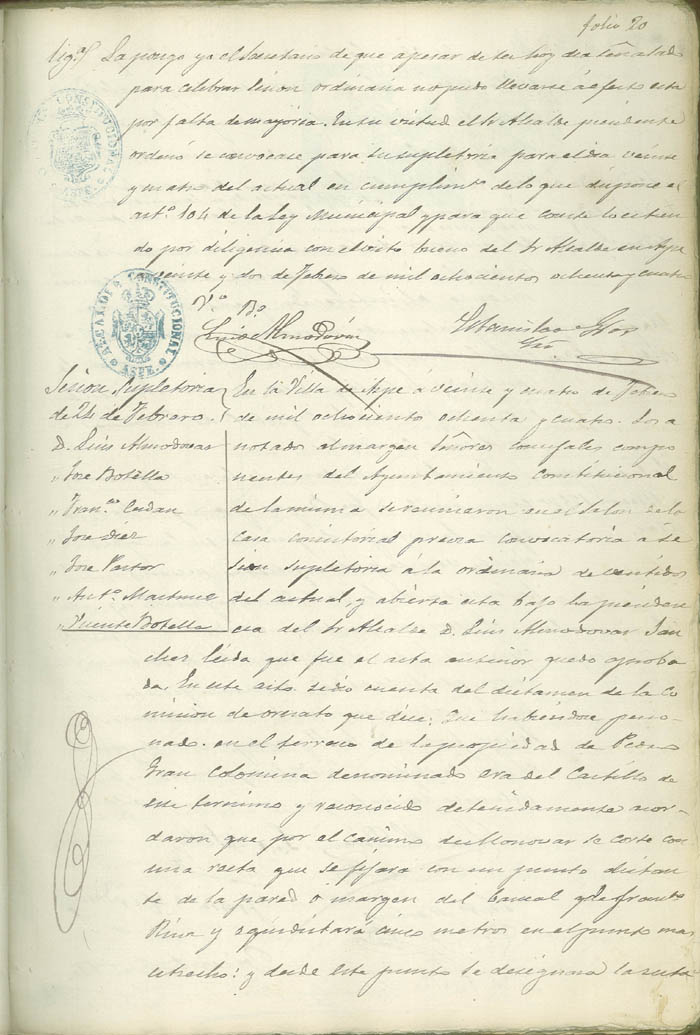 folio 20
Lig.ª La pongo yo el Secretario de que apesar de ser hoy dia señalado
para celebrar sesion ordinaria no pudo llevarse á efecto esta
por falta de mayoria. En su virtud el Sr Alcalde presidente
ordenó se convocase para su supletoria para el dia veinte
y cuatro del actual en cumplimto de lo que dispone el
artº 104 de la Ley Municipal y para que conste lo estien
do por diligencia con el visto bueno del Sr Alcalde en Aspe
a veinte y dos de Febrero de mil ochocientos ochenta y cuatro
Vº Bº
Luis Almodovar
Estanislao
Srio
ALCALDIA CONSTITUCIONAL
ASPE
CONSTITUCIONAL
ASPE
Sesion Supletoria
de 24 de Febrero.
D. Luis Almodovar
" Jose Botella
" Franco
" Jose Diez
" Jose Pastor
" Antº Martinez
" Vicente Botella
En la Villa de Aspe á veinte y cuatro de Febrero
de mil ochociento ochenta y cuatro. Los a
notados al margen Señores concejales compo
nentes del Ayuntamiento Constitucional
de la misma se reunieron en el Salon de la
Casa consistorial previa convocatoria á se
sion supletoria á la ordinaria de veintidos
del actual, y abierta esta bajo la presiden
cia del Sr Alcalde D. Luis Almodovar San
chez leida que fue el acta anterior quedo aproba
da. En este acto se dio cuenta del dictamen de la Co
mision de ornato que dice: Que habiendose perso
nado en el terreno de la propiedad de Pedro
Gran Colomina denominado era del Castillo de
este termino y reconocido detenidamente acor-
daron que por el camino de Monovar se corte con
una recta que se fijara con un punto distan
te de la pared ó margen del bancal
y equidistará cinco metros en el punto mas
estrecho: y desde este punto se designara la recta